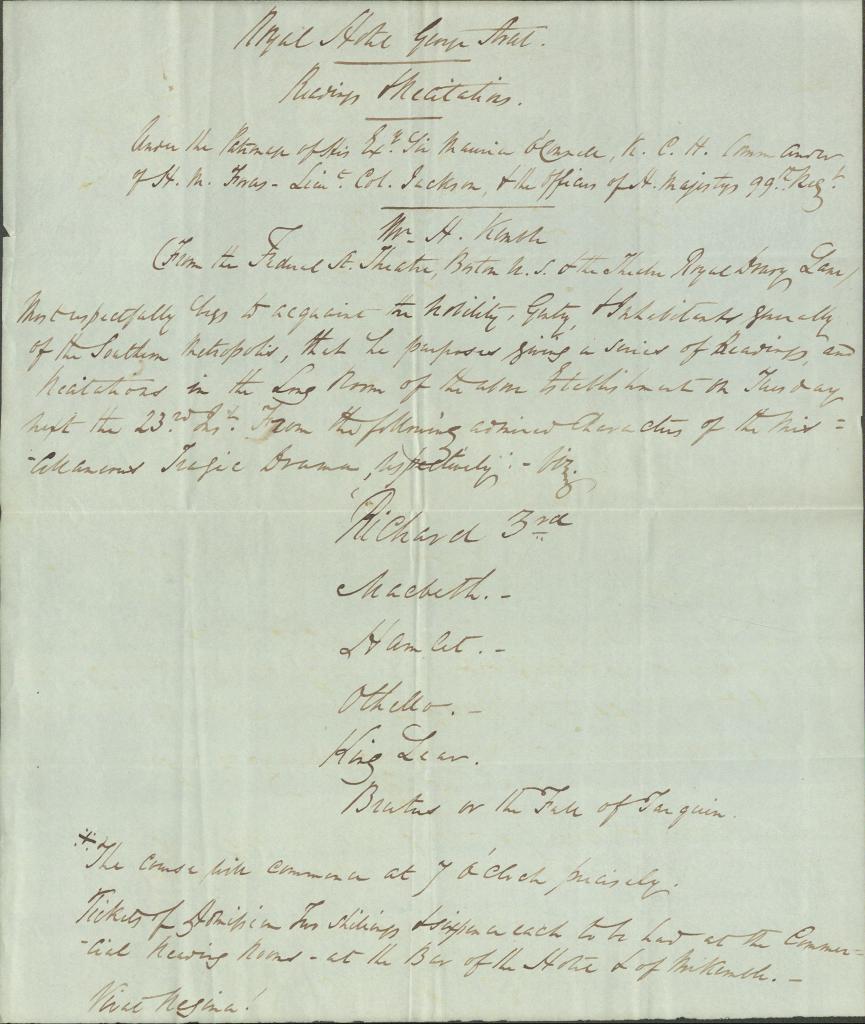 Royal Hotel George Street.
Readings & Recitations.
Under the Patronage of His Exy. Sir Maurice O'Connell, K. C. H. Commander
of H. M. Forces - Lieut. Col. Jackson, & the officers of H. Majestys 99th Regt.
Mr. H. Kemble
(From the Federal St. Theatre, Boston U. S. & the Theatre Royal Drury Lane)
Most respectfully begs to acquaint the Nobility, Gentry, & Inhabitants generally
of the Southern Metropolis, that he purposes giving a series of Readings, and
Recitations in the Long Room of the above Establishment on Tuesday
next the 23rd Inst. From the following admired Characters of the Mis=
-cellaneous Tragic Drama, respectively :- Viz.
Richard 3rd
Macbeth. -
Hamlet. -
Othello. -
King Lear.
Brutus or the Fall of Tarquin.
The course will commence at 7 o'clock precisely.
Tickets of Admission Two shillings & sixpence each to be had at the Commer=
-cial Reading Rooms - at the Bar of the Hotel & of Mr Kemble. -
Vivat Regina!